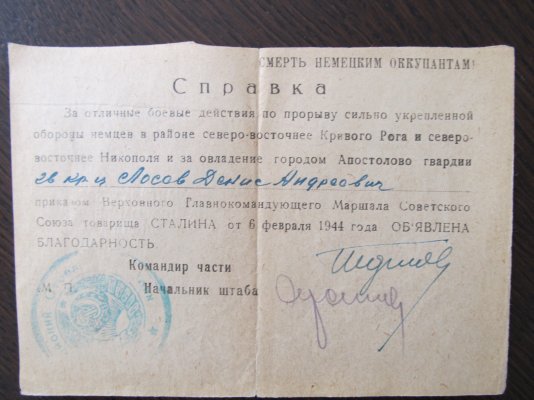 СМЕРТЬ НЕМЕЦКИМ ОККУПАНТАМ!
Справка
За отличные боевые действия по прорыву сильно укрепленной
обороны немцев в районе северо-восточнее Кривого Рога и северо-
восточнее Никополя и за овладение городом Апостолово гвардии
гв кр-ц Лосов Денис Андреевич
приказом Верховного Главнокомандующего Маршала Советского
Союза товарища СТАЛИНА от 6 февраля 1944 года ОБ'ЯВЛЕНА
БЛАГОДАРНОСТЬ.
Командир части
М. П. Начальник штаба